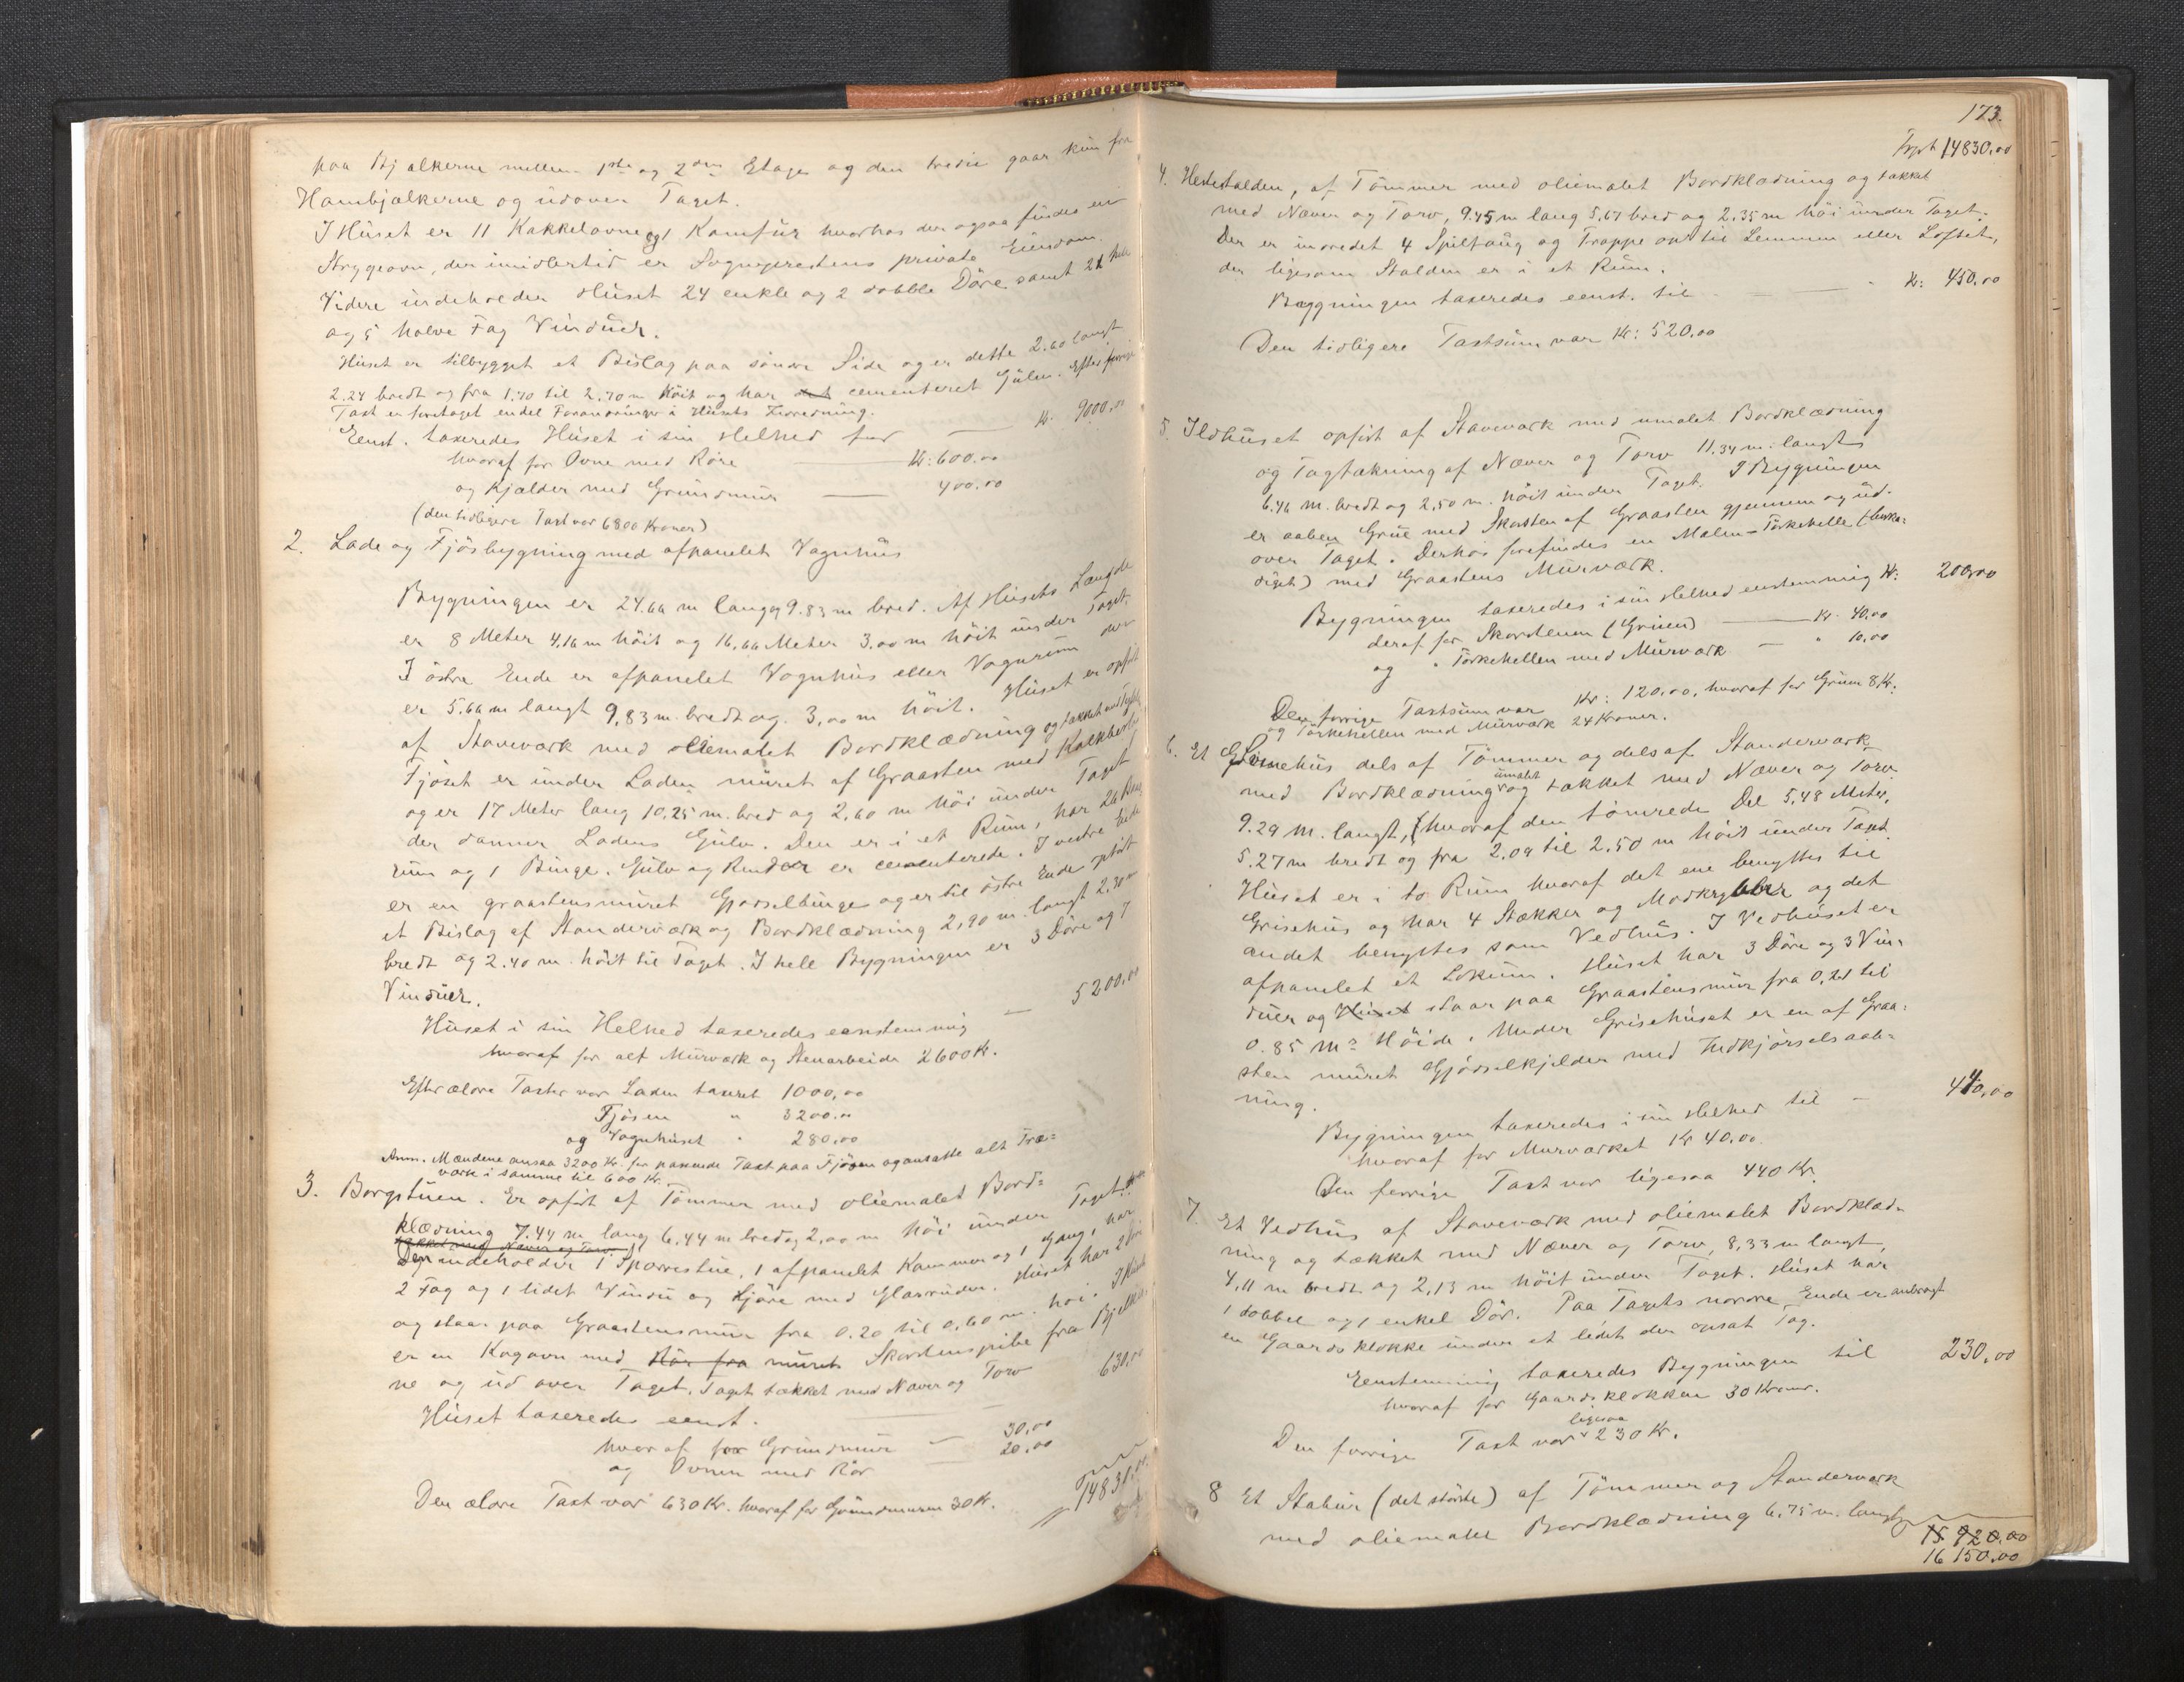 paa Bjælkerne mellem 1ste og 2den Etage og den tredie gaar kun fra
Hambjælkerne og udover Taget.
I Huset er 11 Kakkelovne og 1 Komfur hvorhos der ogsaa findes en
Strygeovn, der imidlertid er Sogneprestens private Eiendom.
Videre indeholder Huset 24 enkle og 2 dobble Döre samt 21 hele
og 5 halve Fag Vinduer.
Huset er tilbygget et Bislag paa söndre Side og er dette 2.60 langt
2.24 bredt og fra 1.70 til 2.70 m höit og har cementeret Gulv. Efter forrige
Taxt er foretaget endel Forandringer i Husets Indredning.
Eenst. taxeredes Huset i sin Helhed for — Kr. 9000,00
hvoraf for Ovne med Röre — Kr: 600.00
og Kjælder med Grundmur — 400.00
(den tidligere Taxt var 6800 Kroner)
2. Lade og Fjösbygning med afpanelet Vognhus
Bygningen er 24.66 m lang og 9.83 m bred. Af Husets Længde
er 8 Meter 4,16 m höit og 16,66 Meter 3.00 m höit under Taget.
I östre Ende er afpanelet Vognhus eller Vognrum der
er 5.66 m langt 9,83 m. bredt og 3,00 m höit. Huset er opfört
af Stavværk med oliemalet Bordklædning og tækket med
Fjöset er under Laden muret af Graasten med Kalkbeslag
og er 17 Meter lang 10,25 m. bred og 2,60 m höi under Taget
der danner Ladens Gulv. Den er i et Rum, har 26 Baas
rum og 1 Binge. Gulv og Render er cementerede. I vestre Ende
er en graastensmuret Gjödselbinge og er til östre Ende opfört
et Bislag af Standerværk og Bordklædning 2,90 m. langt 2.30 m
bredt og 2.40 m. höit til Taget. I hele Bygningen er 3 Döre og 7
Vinduer.
Huset i sin Helhed taxeredes eenstemmig — 5200,00
hvoraf for alt Murværk og Stenarbeide 2600 Kr.
Efter ældre Taxter var Laden taxeret 1000,00
Fjösen " 3200.00
og Vognhuset " 280,00
Anm. Mændene ansaa 3200 Kr. for passende Taxt paa Fjösen og ansatte alt Træ=
værk i samme til 600 Kr.
3. Borgstuen. Er opfört af Tömmer med oliemalet Bord=
klædning 7.44 m lang 6,44 m bred og 2,00 m höi under Taget
tækket med Næver og Torv.
Den indeholder 1 Sperrestue, 1 afpanelet Kammer og 1 Gang, har
2 Fag og 1 lidet Vindu og Ljore med Glasruder. Huset har 2
og staar paa Graastensmur fra 0.20 til 0,60 m. höi. I Huset
er en Kogovn med Rör fra muret Skorstenspibe fra Bjelker
ne og ud over Taget. Taget tækket med Næver og Torv
Huset taxeredes eenst. — 630,00
hvoraf for Grundmur — 30,00
og Ovnen med Rör — 20.00
Den ældre Taxt var 630 Kr. hvoraf for Grundmuren 30 Kr.
14830.00
173.
Trpt 14830.00
4. Hestestalden, af Tömmer med oliemalet Bordklædning og tækket
med Næver og Torv, 9.45 m lang 5,67 bred og 2.35 m höi under Taget.
Der er indredet 4 Spiltaug og Trappe op til Lemmen eller Loftet,
der ligesom Stalden er i et Rum.
Bygningen taxeredes eenst. til — Kr: 450.00
Den tidligere Taxtsum var Kr: 520.00
5. Ildhuset opfört af Stavværk med umalet Bordklædning
og Tagtækning af Næver og Torv 11.34 m. langt
6.46 m. bredt og 2,50 m. höit under Taget. I Bygningen
er aaben Grue med Skorsten af Graasten gjennem og ud=
over Taget. Derhos forefindes en Malm-Törkehelle (beska=
diget) med Graastens Murværk.
Bygningen taxeredes i sin Helhed eenstemmig Kr: 200,00
deraf for Skorstenen (Gruen) — Kr. 40.00
og " Törkehellen med Murværk — " 10,00
Den forrige Taxtsum var Kr: 120.00, hvoraf for Gruen 8 Kr.
og Törkehellen med Murværk 24 Kroner.
6. Et Grisehus dels af Tömmer og dels af Standerværk
med Bordklædning umalet og tækket med Næver og Torv
9.29 m. langt, (hvoraf den tömrede Del 5,48 Meter,
5.27 m bredt og fra 2,09 til 2.50 m höit under Taget.
Huset er i to Rum hvoraf det ene benyttes til
Grisehus og har 4 Stækker og Madkrybber og det
andet benyttes som Vedhus. I Vedhuset er
afpanelet et Lokum. Huset har 3 Döre og 3 Vin=
duer og Huset staar paa Graastensmur fra 0,21 til
0.85 m: Höide. Under Grisehuset er en af Graa=
sten muret Gjödselkjelder med Indkjörselsaab=
ning.
Bygningen taxeredes i sin Helhed til — 440,00
hvoraf for Murværket Kr 40.00.
Den forrige Taxt var ligesaa 440 Kr.
7. Et Vedhus af Stavværk med oliemalet Bordklæd=
ning og tækket med Næver og Torv, 8,33 m langt,
4,11 m bredt og 2,13 m höit under Taget. Huset har
1 dobbel og 1 enkel Dör. Paa Tagets nordre Ende er anbragt
en Gaardsklokke under et lidet der opsat Tag.
Eenstemmig taxeredes Bygningen til 230,00
hvoraf for Gaardsklokken 30 Kroner.
Den forrige Taxt var ligesaa 230 Kr.
8 Et Stabur (det störste) af Tömmer og Standerværk
med oliemalet Bordklædning 6,75 m. langt
15 920,00
16 150,00